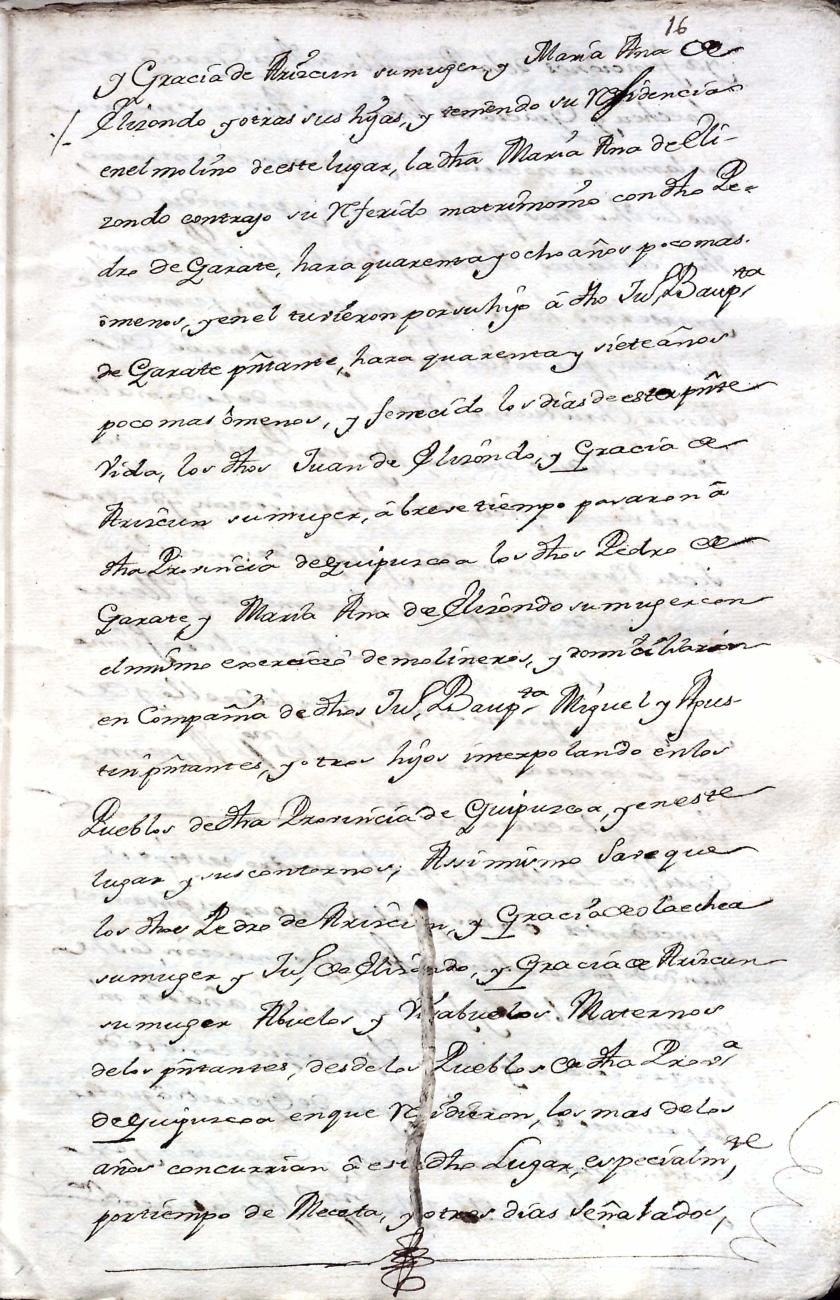 16
y Gracia de Arizcun su muger, y Maria Ana de
Elizondo y otras sus hijas, y teniendo su Residencia
en el molino de este lugar, la dha Maria Ana de Eli-
zondo contrajo su Referido matrimonio con dho Pe-
dro de Garate, hara quarenta y ocho años poco mas
ò menos, y en el tuvieron por su hijo â dho Jun Baupta
de Garate pñtante, hara quarenta y siete años
poco mas ò menos, y fenecido los dias de esta pñte
Vida, los dhos Juan de Elizondo, y Gracia de
Arizcun su muger, â breve tiempo pasaron â
dha Provincia de Guipuzcoa los dhos Pedro de
Garate, y Maria Ana de Elizondo su muger con
el mismo exercicio de molineros, y domiciliaron
en Compañia de dhos Jun Baupta Miguel y Agus-
tin pñtantes, y otros hijos interpolando en los
Pueblos de dha Provincia de Guipuzcoa, y en este
lugar y sus contornos; Assimismo Save que
los dhos Pedro de Arizcun, y Gracia de olaechea
su muger y Jun de Elizondo, y Gracia de Arizcun
su muger Abuelos y Visabuelos Maternos
de los pñtantes, desde los Pueblos de dha Prova
de Guipuzcoa en que Residieron, los mas de los
años concurrian â este dho Lugar, especialmte
por tiempo de Meceta, y otros dias señalados,